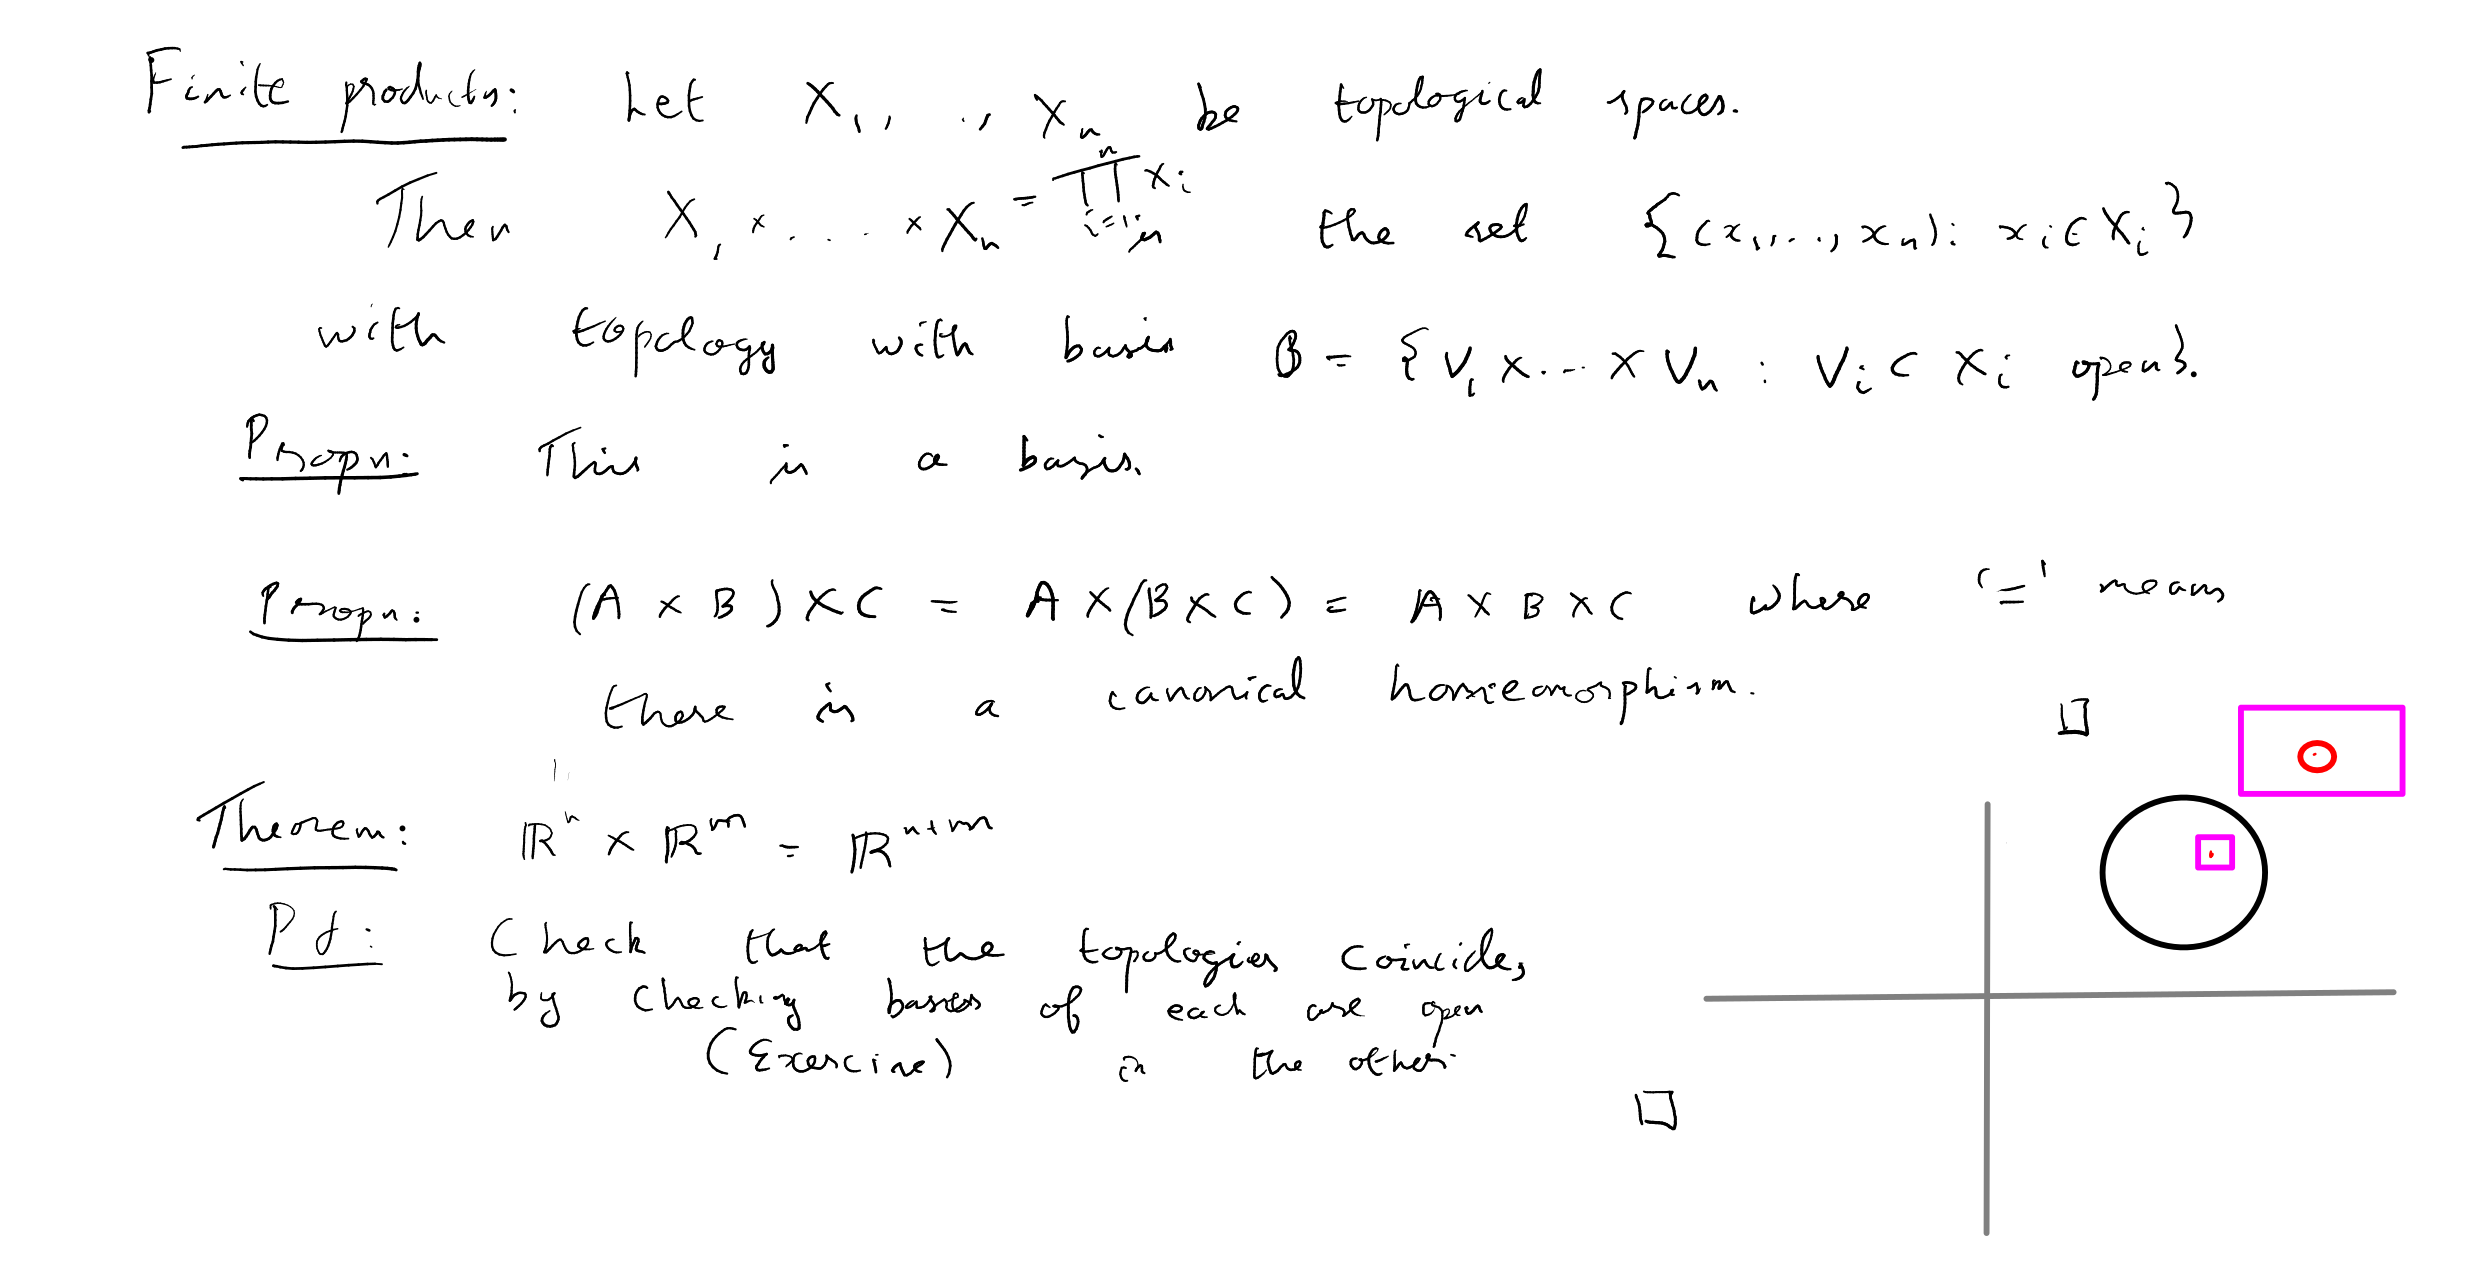 Finite products: Let X₁, .., Xₙ be topological spaces.
Then X₁ × . . . . × Xₙ = ∏ⁿᵢ₌₁ Xᵢ is the set {(x₁,..., xₙ): xᵢ ∈ Xᵢ}
with topology with basis B = {V₁ × ... × Vₙ : Vᵢ ⊂ Xᵢ open}.
Propn: This is a basis.
Propn: (A × B) × C = A × (B × C) = A × B × C where '=' means
there is a canonical homeomorphism. □
Theorem: ℝⁿ × ℝᵐ = ℝⁿ⁺ᵐ
Pf: Check that the topologies coincide,
by checking bases of each are open
(Exercise) in the other. □